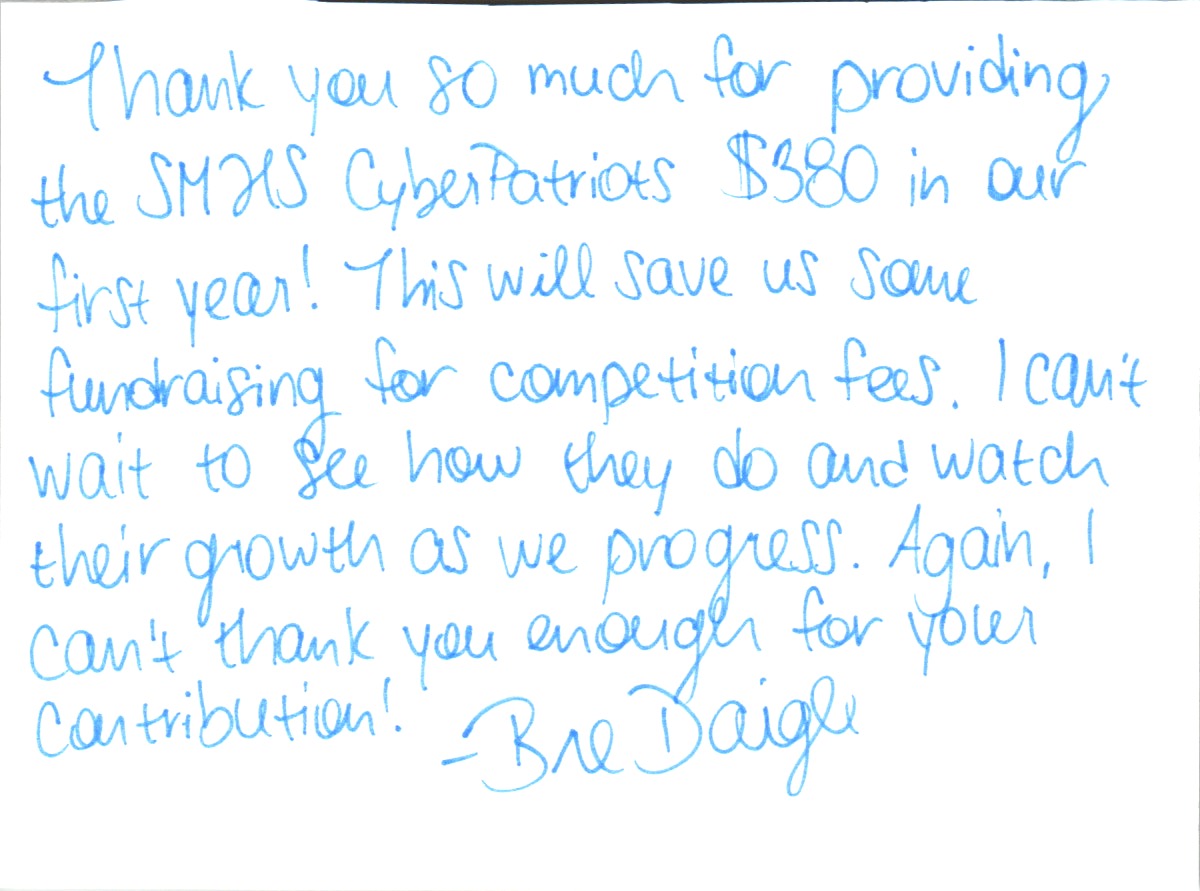 Thank you so much for providing
the SMHS CyberPatriots $380 in our
first year! This will save us some
fundraising for competition fees. I can't
wait to see how they do and watch
their growth as we progress. Again, I
can't thank you enough for your
contribution!
-Bre Daigle